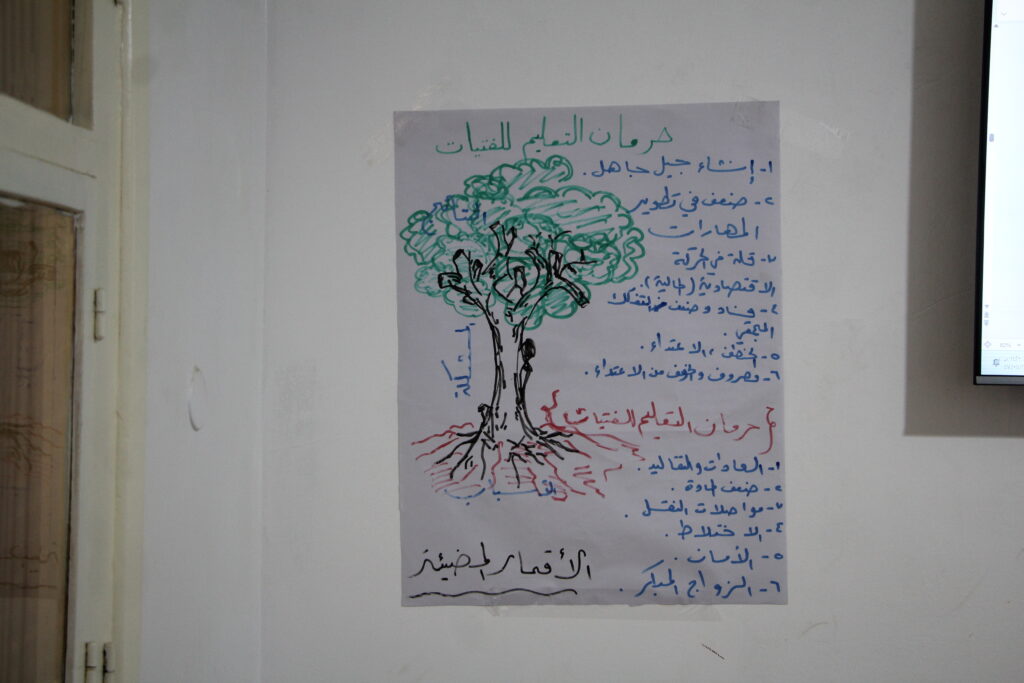 حرمان التعليم للفتيات
١- إنشاء جيل جاهل.
٢- ضعف في تطوير
المهارات
٣- قلة في الحركة
الاقتصادية (المالية).
٤- وضعف
٥- العنف، الاعتداء.
٦- والخوف من الاعتداء.
النتائج
المشكلة
حرمان التعليم للفتيات
١- العادات والتقاليد.
٢- ضعف المادة.
٣- مواصلات النقل.
٤- الاختلاط.
٥- الأمان.
٦- الزواج المبكر.
الأسباب
الأقمار المضيئة